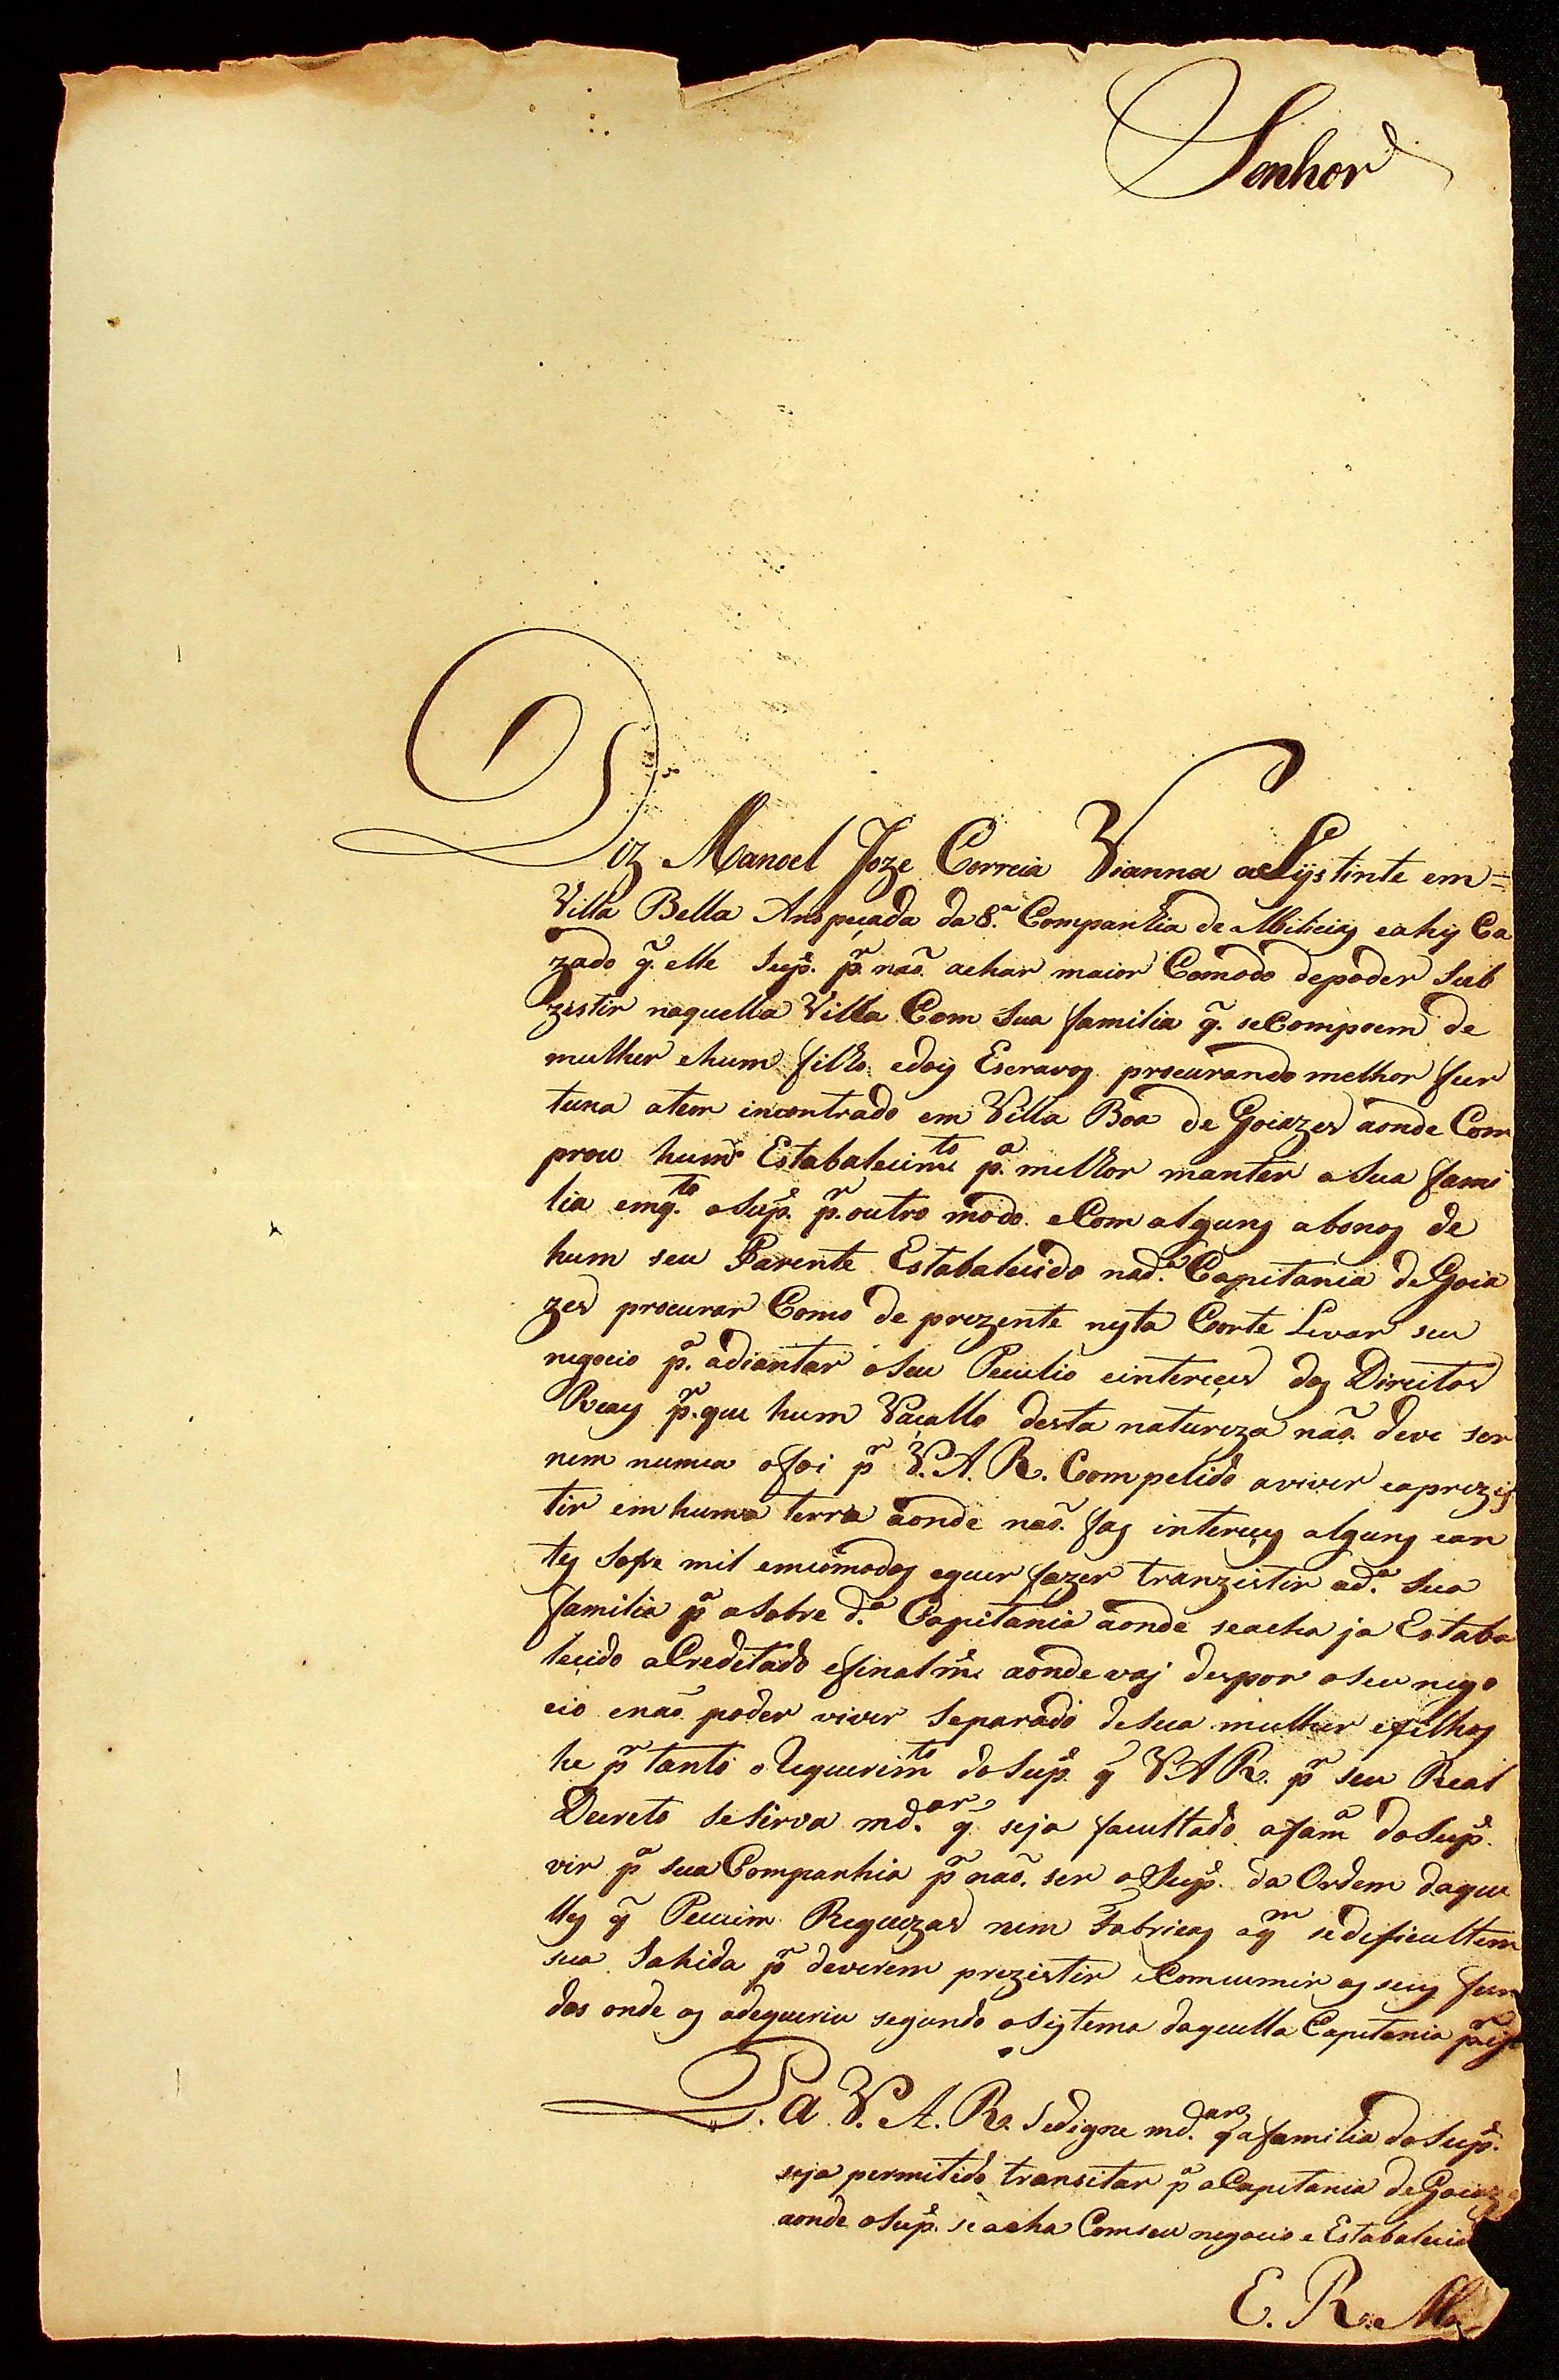 Senhor
Diz Manoel Joze Correia Vianna aSystinte em=
Villa Bella Anspeçada da 8.ª Companhia de Milicias eahy Ca
zado q̃. elle Sup.e p.r naõ. achar maior Comodo depoder Sub
zistir naquella Villa Com Sua familia q̃. seCompoem de
mulher ehum filho. edois Escravos procurando melhor fur
tuna atem incontrado em Villa Boa de Goiazes aonde Com
prou hum Estabalecim.to p.a melhor manter a Sua fami
lia emq.to oSup.e p.r outro modo. eCom alguns abonos de
hum seu Parente Estabalecido nad.ª Capitania deGoia
zes procurar Como de prezente nesta Corte Levar seu
negocio p.a adiantar oSeu Peculio eintereces dos Direitos
Reays p.r que hum Vaçallo desta natureza naõ. deve ser
nem nunca ofoi p.r V.A.R. Compelido aviver eaprezis
tir em huma terra aonde naõ. fas interecys alguns ean
tes Sofre mil emcomodos equer fazer tranzistir ad.ª Sua
familia p.a aSobre d.ª Capitania aonde seacha ja Estaba
lecido aCreditado efinalm.e aonde vaj despor oSeu nego
cio enaõ poder viver Separado deSua mulher efilhos
he p.r tanto oRequerim.to doSup.e q̃ VAR. p.r seu Real
Decreto SeSirva md.ar q̃ seja facultado afam.a doSup.e
vir p.a sua Companhia p.r naõ. ser oSup.e da Ordem daque
lles q̃ Pucuim Requezas nem Fabricas aq.m sedificultem
sua Sahida p.r deverem prezistir eComcumir os seus fun
dos onde os adequeriu segundo oSistema daquella Capitania p.r iso
P. a V. A. R. Sedigne md.ar q̃ afamilia doSup.e
seja permitido transitar p.a aCapitania deGoiaz
aonde oSup.e se acha Comseu negocio e Estabalecid
E. R. M.